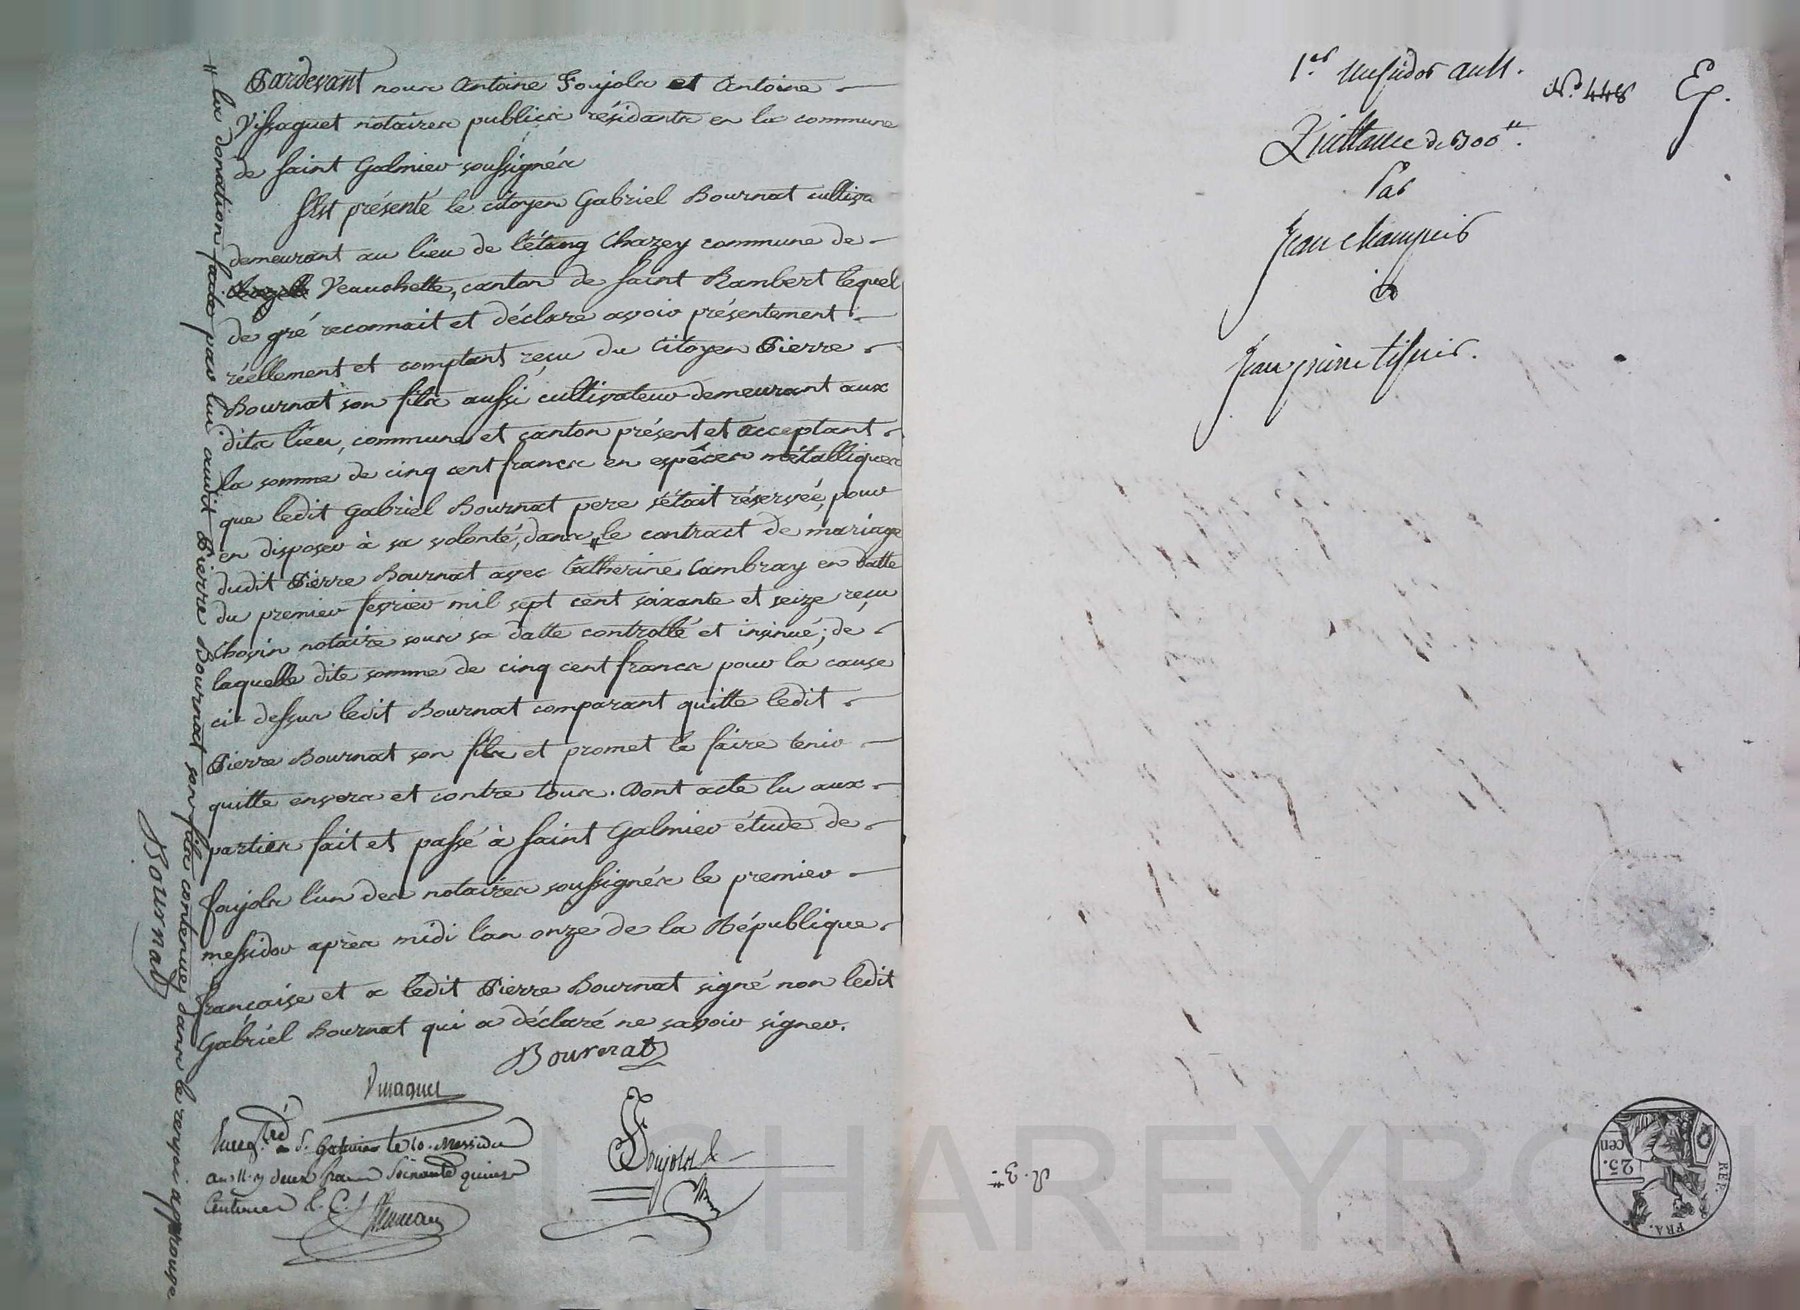 Pardevant nous Antoine Foujols et Antoine
Vissaguet notaires publics résidants en la commune
de Saint Galmier soussignés
S'est présenté le citoyen Gabriel Bournat cultivr
demeurant au lieu de l'étang Chazey commune de
Veauchette, canton de Saint Rambert lequel
de gré reconnait et déclare avoir présentement
réellement et comptant reçu du Citoyen Pierre
Bournat son fils aussi cultivateur demeurant aux
dits lieu, commune et canton présent et acceptant
la somme de cinq cent francs en espéces métalliques
que ledit Gabriel Bournat pere s'était réservée, pour
en disposer à sa volonté, dans " le contract de mariage
dudit Pierre Bournat avec Catherine Cambray en datte
du premier fevrier mil sept cent soixante et seize reçu
Chovin notaire sous sa datte controllé et insinué; de
laquelle dite somme de cinq cent francs pour la cause
ci-dessus ledit Bournat comparant quitte ledit
Pierre Bournat son fils et promet le faire tenir
quitte envers et contre tous. Dont acte lu aux
parties fait et passé à Saint Galmier étude de
Foujols l'un des notaires soussignés le premier
messidor après midi l'an onze de la République
française et a ledit Pierre Bournat signé non ledit
Gabriél Bournat qui a déclaré ne savoir signer.
Bournat
Vissaguet
Foujols
Enregtré a St. Galmier le 10. Messidor
an 11. R deux francs Soixante quinze
Centimes
" la donation faite par lui audit Pierre Bournat son fils contenue dans le renvoi approuvé
Bournat
1.er Messidor an 11.
N.o 448
Ex.
Quittance de 500tt.
Par
Jean
a
Jean
R. 3tt
REP. FRA.
25. cen
CHAREYRON